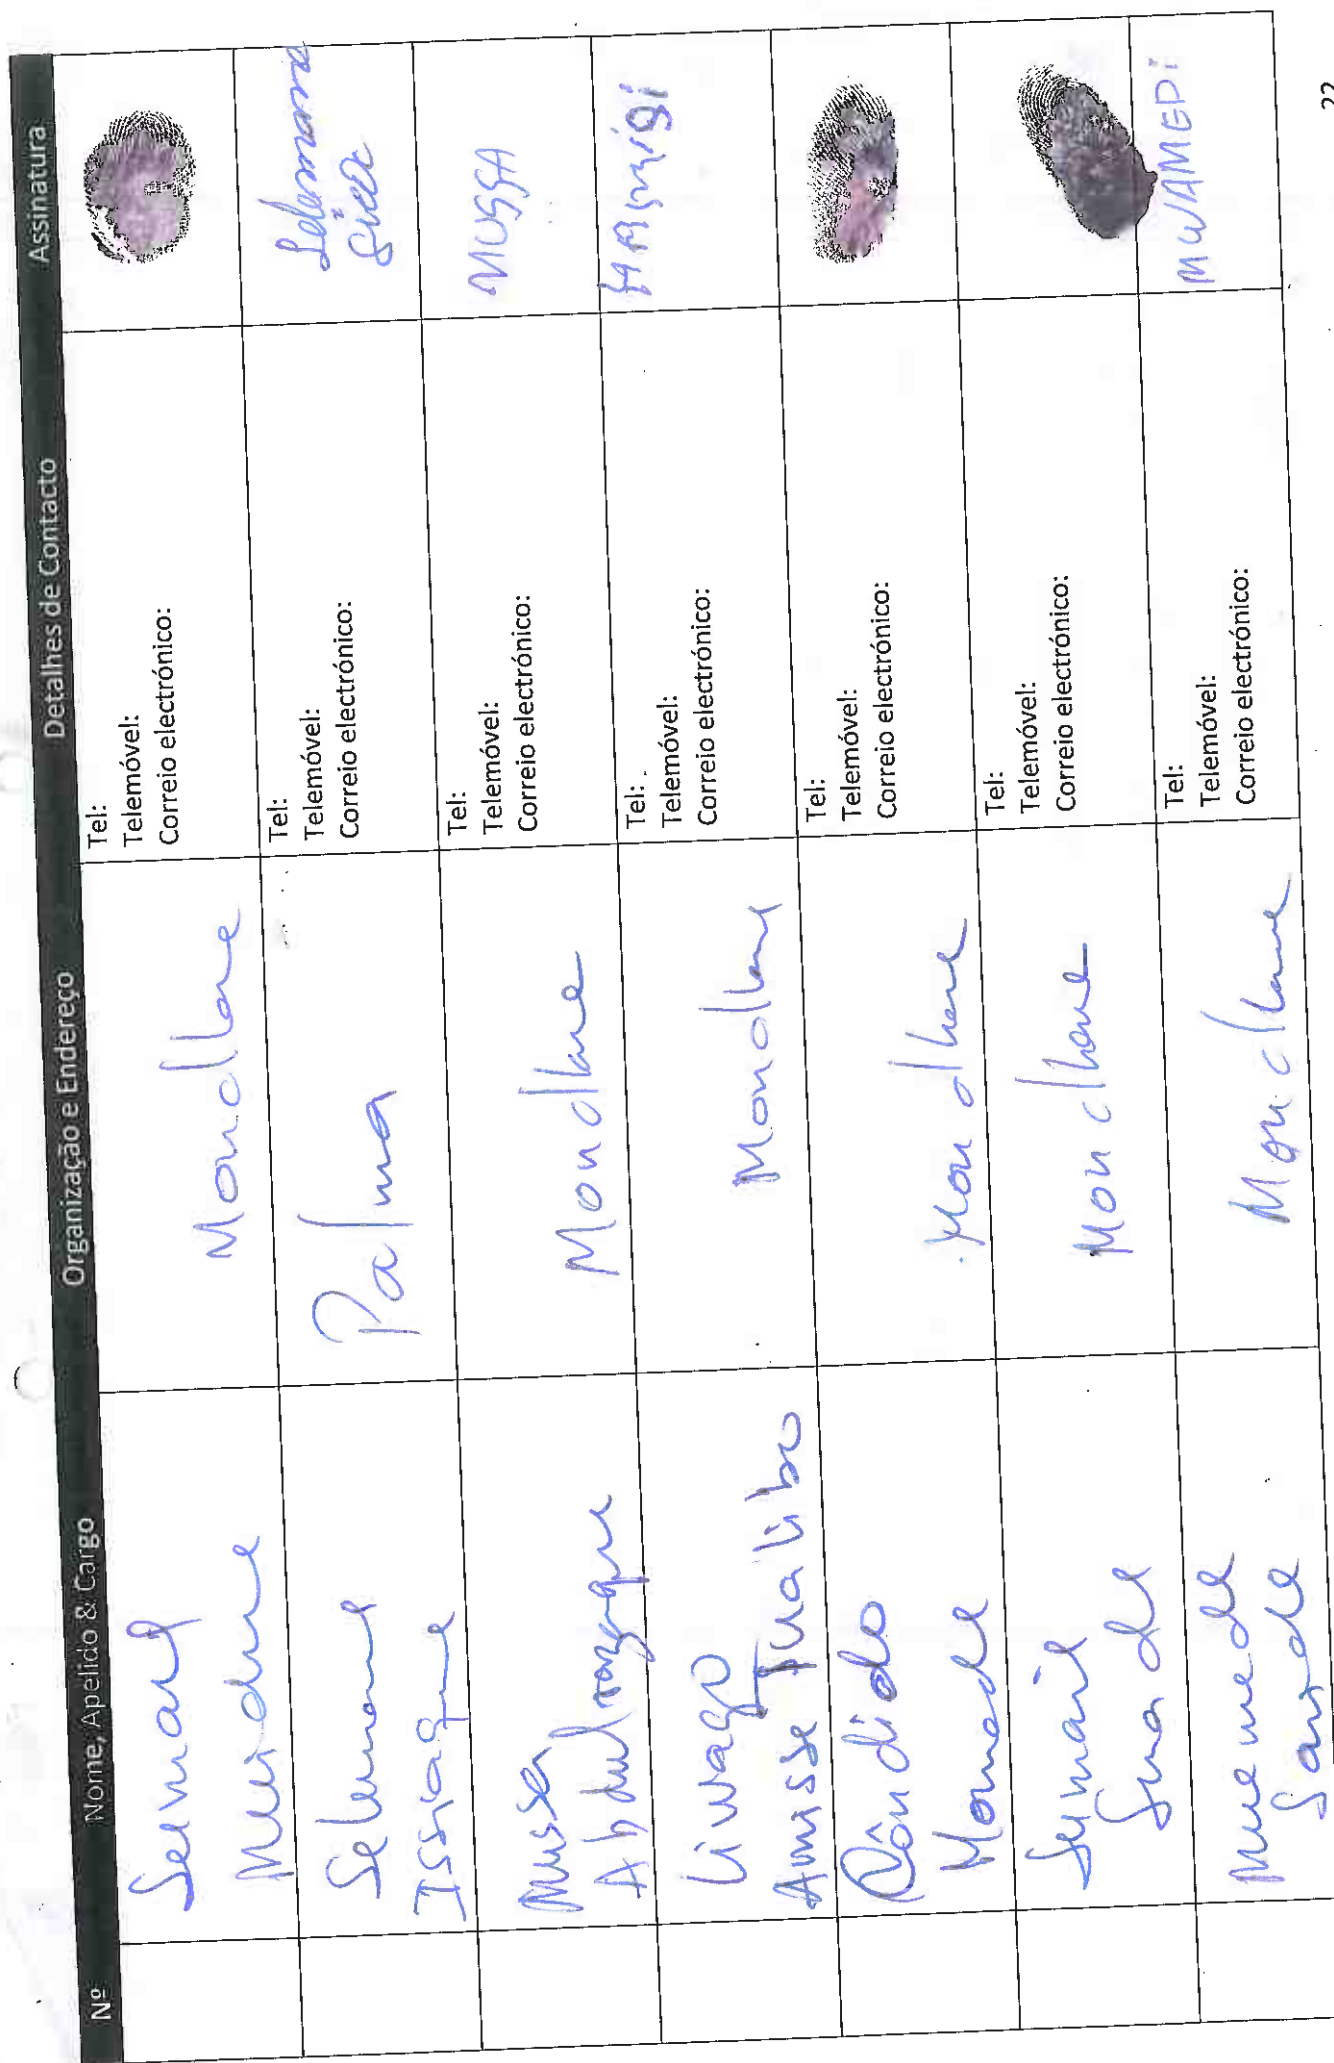 Nº Nome, Apelido & Cargo Organização e Endereço Detalhes de Contacto Assinatura
Mondlane
Tel:
Telemóvel:
Correio electrónico:
Selemane
Issiaque
Palma
Tel:
Telemóvel:
Correio electrónico:
Selemana
Mussa
Abdulrazaque
Mondlane
Tel:
Telemóvel:
Correio electrónico:
MUSSA
Liwago
Amisse Tualibo
Mondlane
Tel:
Telemóvel:
Correio electrónico:
Cândido
Momade
Mondlane
Tel:
Telemóvel:
Correio electrónico:
Mondlane
Tel:
Telemóvel:
Correio electrónico:
Muemede
Saide
Mondlane
Tel:
Telemóvel:
Correio electrónico:
MWAMEDI
22